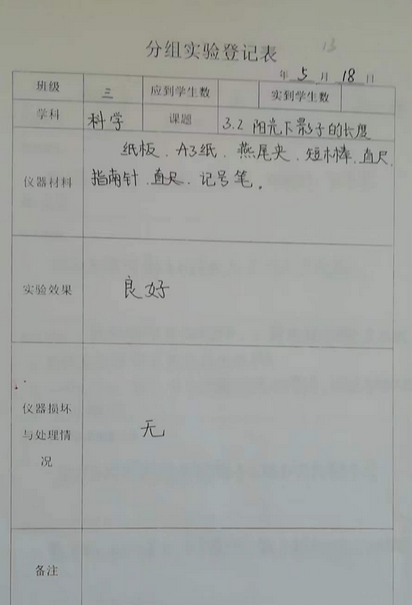 分组实验登记表
年 5 月 18 日
班级 三 应到学生数 实到学生数
学科 科学 课题 3.2 阳光下影子的长度
仪器材料 纸板、A3纸、燕尾夹、短木棒、直尺
指南针、直尺、记号笔。
实验效果 良好
仪器损坏
与处理情
况
无
备注